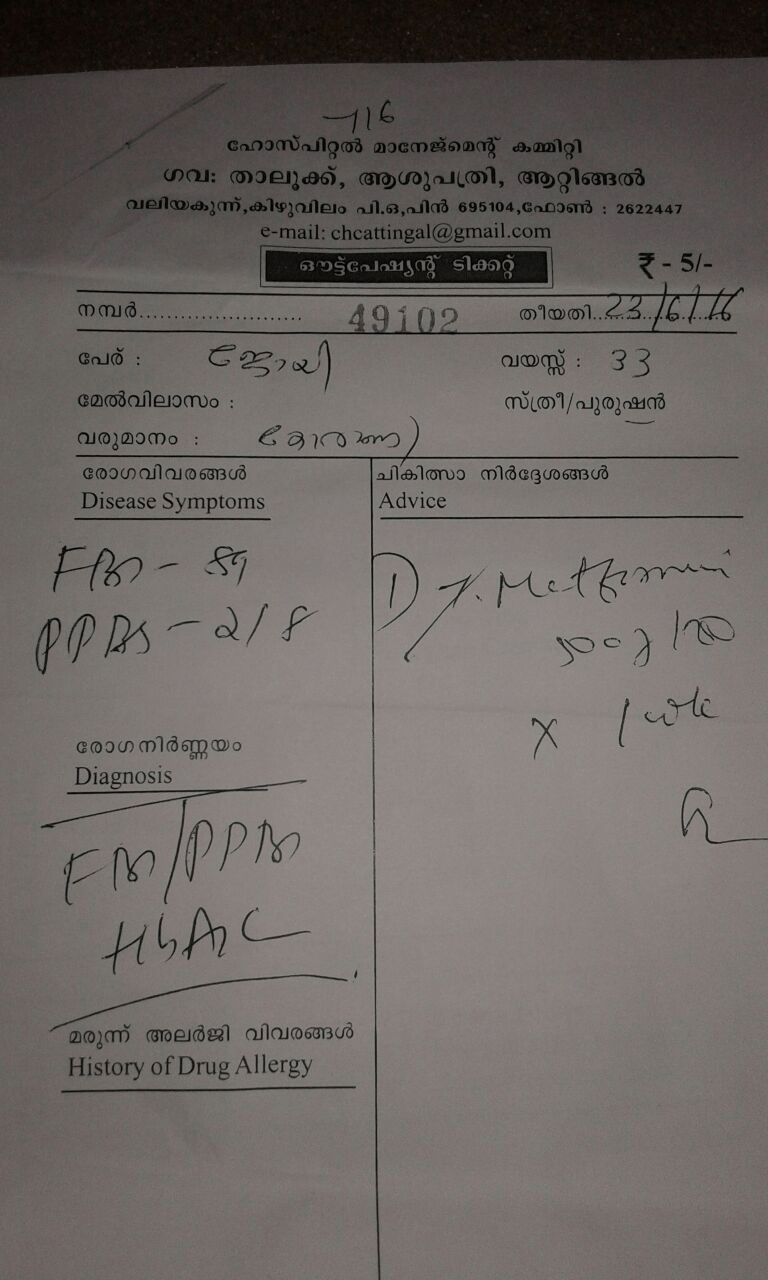 116
ഹോസ്പിറ്റൽ മാനേജ്മെന്റ് കമ്മിറ്റി
ഗവ: താലൂക്ക്, ആശുപത്രി, ആറ്റിങ്ങൽ
വലിയകുന്ന്,കിഴുവിലം പി.ഒ,പിൻ 695104,ഫോൺ : 2622447
e-mail: chcattingal@gmail.com
ഔട്ട്പേഷ്യന്റ് ടിക്കറ്റ് ₹ - 5/-
നമ്പർ........................ 49102 തീയതി..23/6/16
പേര് : ജോയി വയസ്സ് : 33
മേൽവിലാസം : സ്ത്രീ/പുരുഷൻ
വരുമാനം :
രോഗവിവരങ്ങൾ
Disease Symptoms
ചികിത്സാ നിർദ്ദേശങ്ങൾ
Advice
FBS - 89
PPBS - 218
1) T. Metformin
500g/BD
x 1 wk
രോഗനിർണ്ണയം
Diagnosis
FBS/PPBS
HbA1C
മരുന്ന് അലർജി വിവരങ്ങൾ
History of Drug Allergy